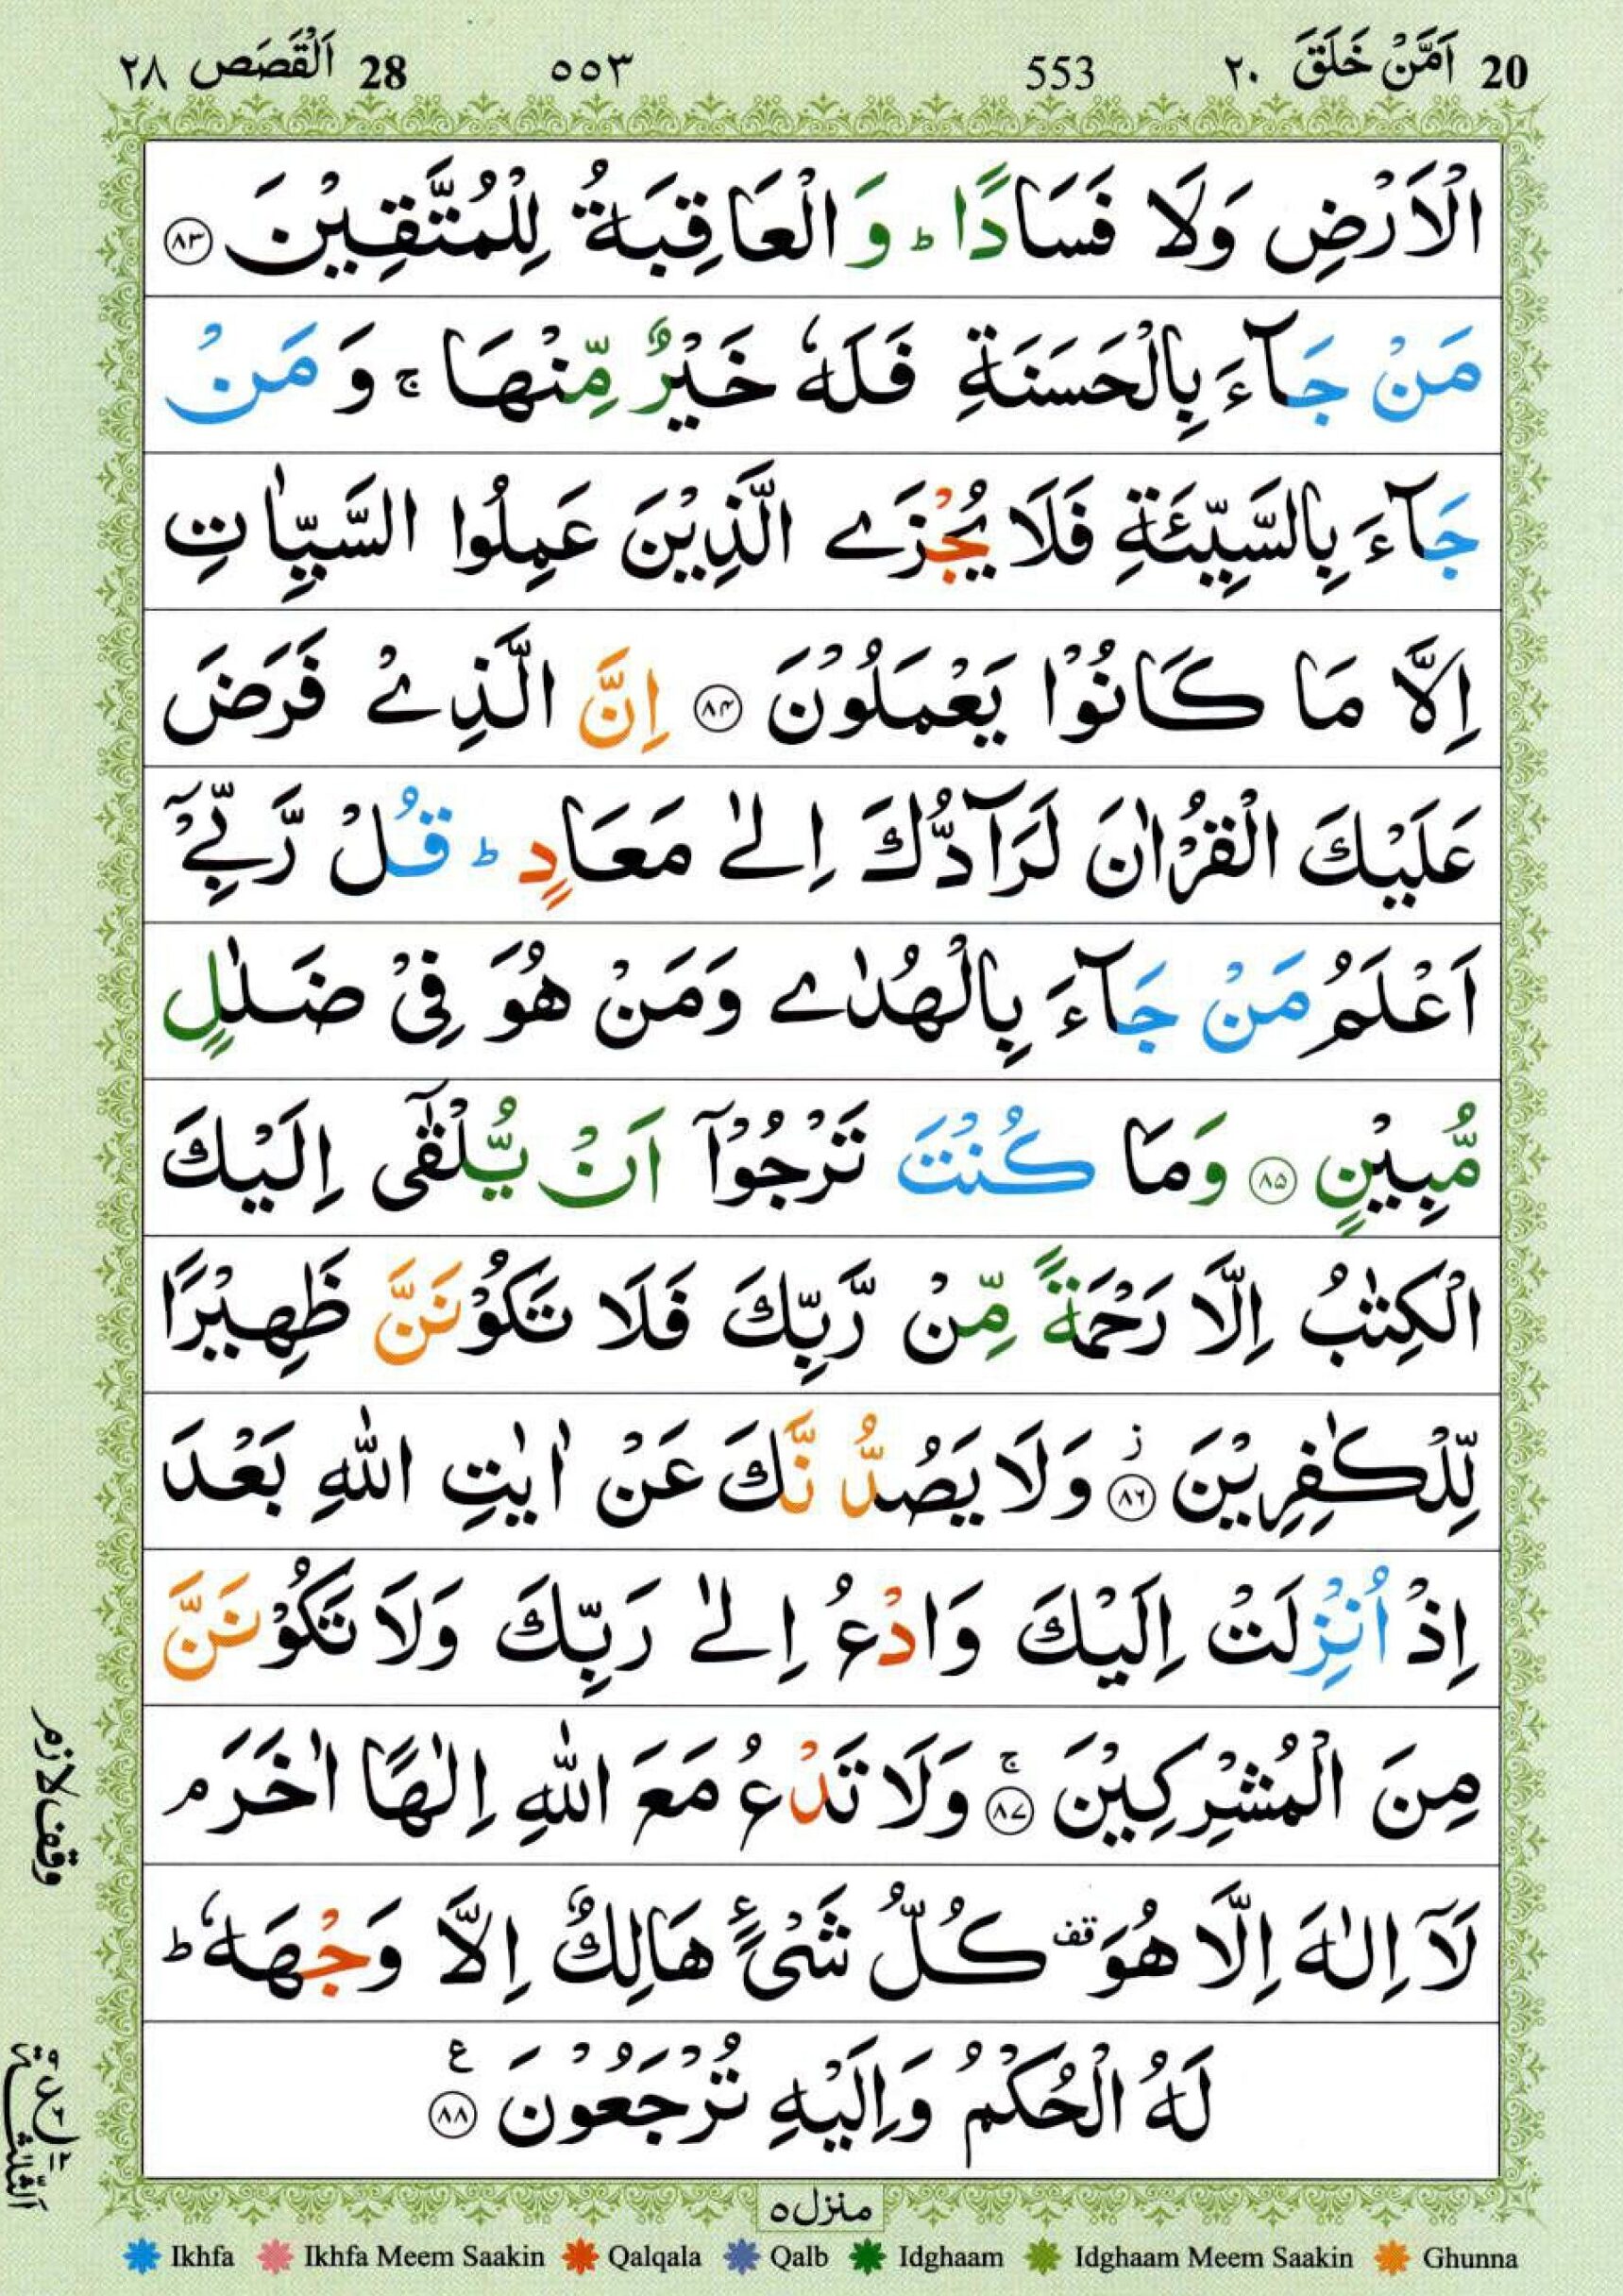 20 اَمَّنْ خَلَقَ ٢٠ 553 ٥٥٣ 28 اَلْقَصَص ٢٨
الْاَرْضِ وَلَا فَسَادًا ؕ وَ الْعَاقِبَةُ لِلْمُتَّقِيْنَ ٨٣
مَنْ جَآءَ بِالْحَسَنَةِ فَلَهٗ خَيْرٌ مِّنْهَا ۚ وَ مَنْ
جَآءَ بِالسَّيِّئَةِ فَلَا يُجْزَے الَّذِيْنَ عَمِلُوا السَّيِّاٰتِ
اِلَّا مَا كَانُوْا يَعْمَلُوْنَ ٨٤ اِنَّ الَّذِےْ فَرَضَ
عَلَيْكَ الْقُرْاٰنَ لَرَآدُّكَ اِلےٰ مَعَادٍ ؕ قُلْ رَّبِّےْٓ
اَعْلَمُ مَنْ جَآءَ بِالْهُدٰے وَمَنْ هُوَ فِيْ ضَلٰلٍ
مُّبِيْنٍ ٨٥ وَمَا كُنْتَ تَرْجُوْٓا اَنْ يُّلْقٰٓى اِلَيْكَ
الْكِتٰبُ اِلَّا رَحْمَةً مِّنْ رَّبِّكَ فَلَا تَكُوْنَنَّ ظَهِيْرًا
لِّلْكٰفِرِيْنَ ٨٦ ز وَلَا يَصُدُّنَّكَ عَنْ اٰيٰتِ اللّٰهِ بَعْدَ
اِذْ اُنْزِلَتْ اِلَيْكَ وَادْعُ اِلےٰ رَبِّكَ وَلَا تَكُوْنَنَّ
مِنَ الْمُشْرِكِيْنَ ٨٧ ۚ وَلَا تَدْعُ مَعَ اللّٰهِ اِلٰهًا اٰخَرَ ۘ
لَآ اِلٰهَ اِلَّا هُوَ قف كُلُّ شَيْءٍ هَالِكٌ اِلَّا وَجْهَهٗ ؕ
لَهُ الْحُكْمُ وَاِلَيْهِ تُرْجَعُوْنَ ٨٨ ع
وقف لازم
الثلثة
منزل ٥
Ikhfa Ikhfa Meem Saakin Qalqala Qalb Idghaam Idghaam Meem Saakin Ghunna